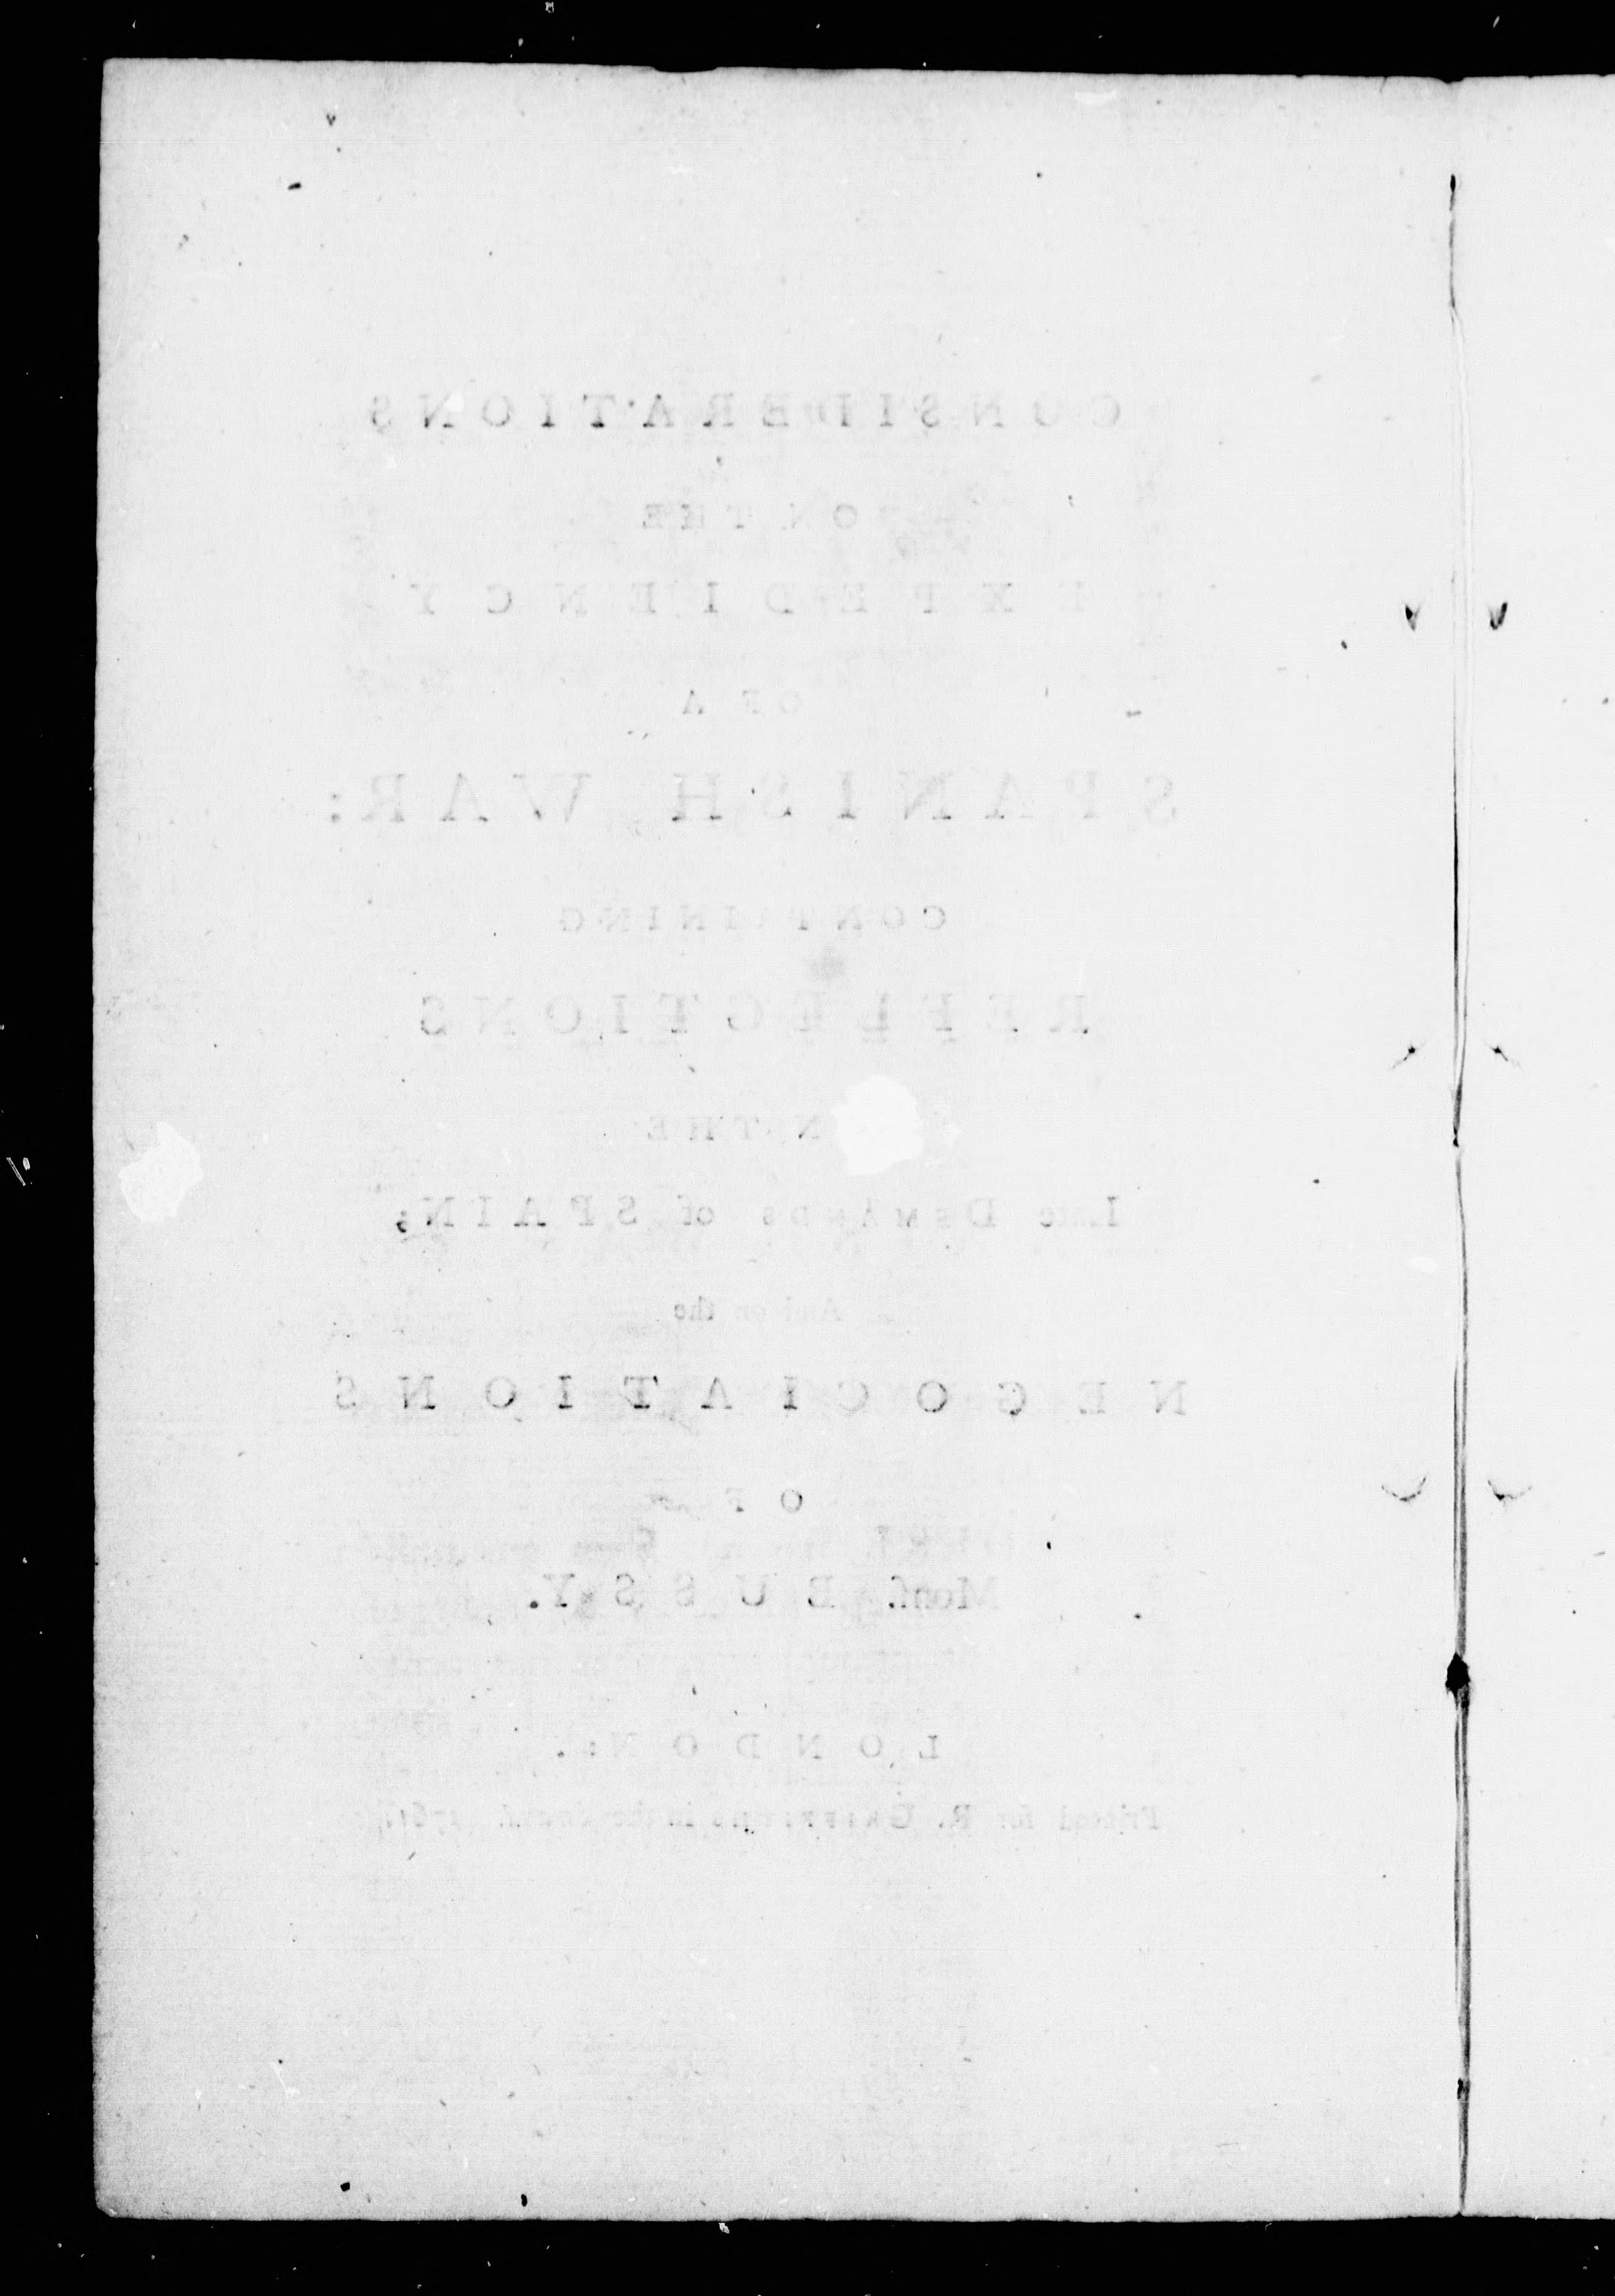 CONSIDERATIONS
ON THE
EXPEDIENCY
OF A
SPANISH WAR:
CONTAINING
REFLECTIONS
N THE
Late DEMANDS of SPAIN;
And on the
NEGOCIATIONS
OF
Monſ. BUSSY.
LONDON:
Printed for R. GRIFFITHS in the Strand. 1761.